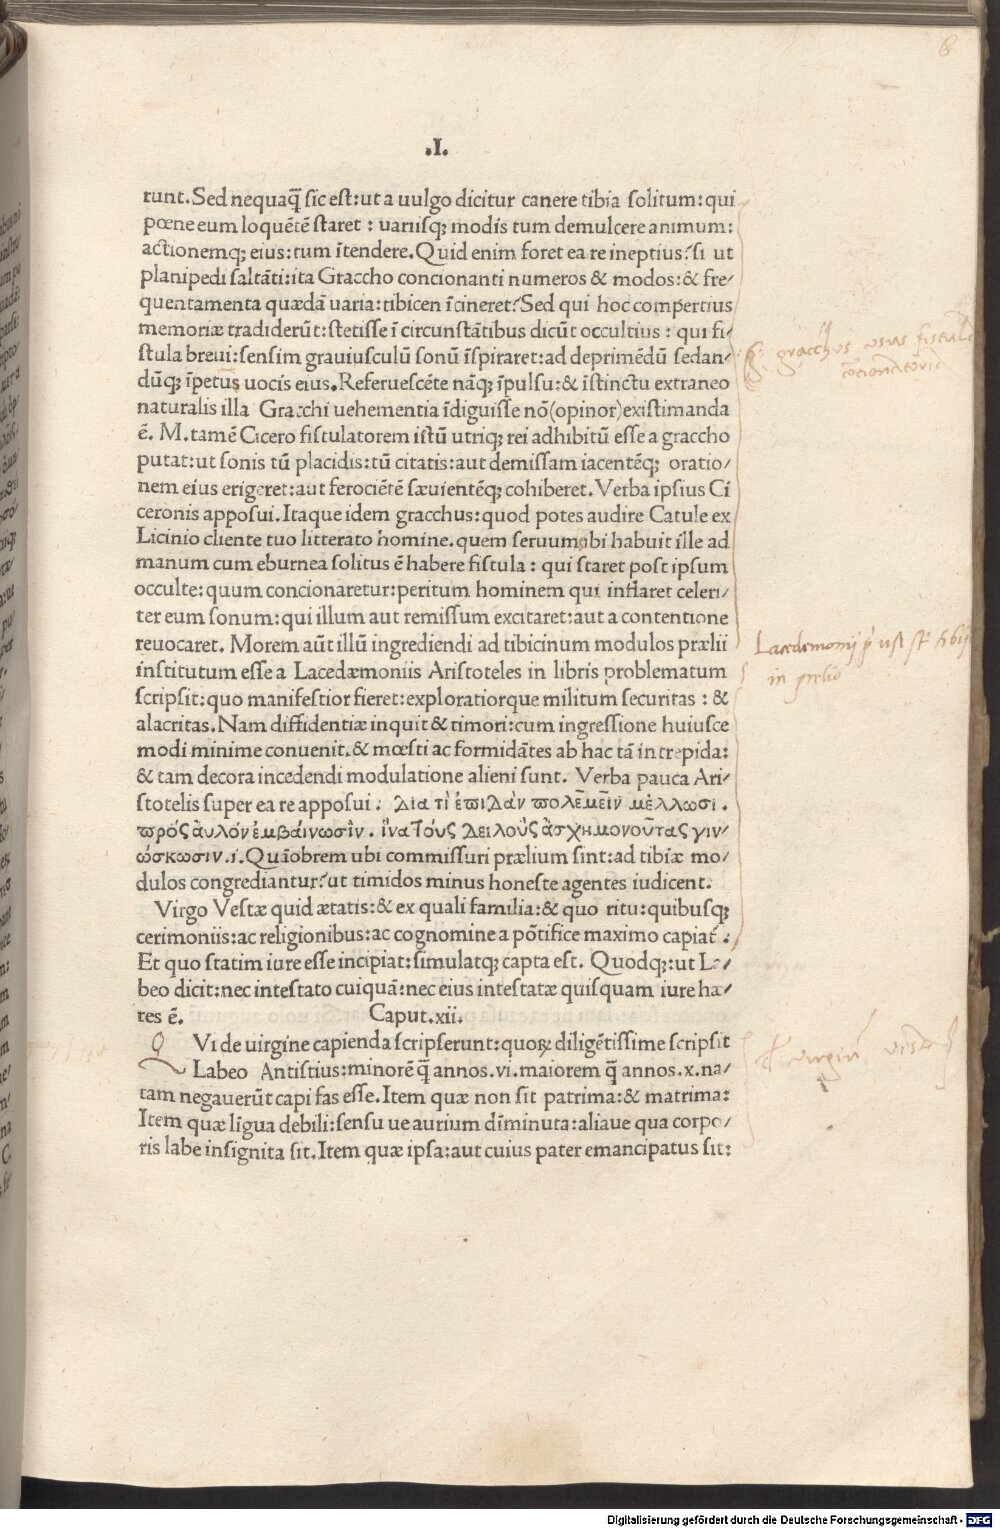 .I.
runt. Sed nequaq̄ sic est: ut a uulgo dicitur canere tibia solitum: qui
pœne eum loquētē staret : uariisq; modis tum demulcere animum:
actionemq; eius: tum ītendere. Quid enim foret ea re ineptius? si ut
planipedi saltāti: ita Graccho concionanti numeros & modos: & fre⸗
quentamenta quædā uaria: tibicen īcineret? Sed qui hoc compertius
memoriæ tradiderūt: stetisse ī circunstātibus dicūt occultius : qui fi⸗
stula breui: sensim grauiusculū sonū īspiraret: ad deprimēdū sedan⸗
dūq; īpetus uocis eius. Referuescēte nāq; īpulsu: & īstinctu extraneo
naturalis illa Gracchi uehementia īdiguisse nō (opinor) existimanda
ē. M. tamē Cicero fistulatorem istū utriq; rei adhibitū esse a graccho
putat: ut sonis tū placidis: tū citatis: aut demissam iacentēq; oratio⸗
nem eius erigeret: aut ferociētē sæuientēq; cohiberet. Verba ipsius Ci
ceronis apposui. Itaque idem gracchus: quod potes audire Catule ex
Licinio cliente tuo litterato homine. quem seruum sibi habuit ille ad
manum cum eburnea solitus ē habere fistula : qui staret post ipsum
occulte: quum concionaretur: peritum hominem qui inflaret celeri⸗
ter eum sonum: qui illum aut remissum excitaret: aut a contentione
reuocaret. Morem aūt illū ingrediendi ad tibicinum modulos prælii
institutum esse a Lacedæmoniis Aristoteles in libris problematum
scripsit: quo manifestior fieret: exploratiorque militum securitas : &
alacritas. Nam diffidentiæ inquit & timori: cum ingressione huiusce
modi minime conuenit. & mœsti ac formidātes ab hac tā intrepida:
& tam decora incedendi modulatione alieni sunt. Verba pauca Ari⸗
stotelis super ea re apposui : Δία τὶ ἐπιδὰν πολεμεῖν μέλλωσι .
πρός ἀυλόν ἐμβάινωσιν . ἵνα τούς δειλοὺς ἀσχημονοῦτας γιν⸗
ώσκωσιν .i. Quāobrem ubi commissuri prælium sint: ad tibiæ mo⸗
dulos congrediantur? ut timidos minus honeste agentes iudicent.
Virgo Vestæ quid ætatis: & ex quali familia: & quo ritu: quibusq;
cerimoniis: ac religionibus: ac cognomine a pōtifice maximo capiat̄ :
Et quo statim iure esse incipiat: simulatq; capta est. Quodq;: ut La⸗
beo dicit: nec intestato cuiquā: nec eius intestatæ quisquam iure hæ⸗
res ē. Caput. xii.
Q VI de uirgine capienda scripserunt: quoꝝ diligētissime scripsit
Labeo Antistius: minorē q̄ annos. vi. maiorem q̄ annos. x. na⸗
tam negauerūt capi fas esse. Item quæ non sit patrima: & matrima:
Item quæ līgua debili: sensu ue aurium dīminuta: aliaue qua corpo⸗
ris labe insignita sit. Item quæ ipsa: aut cuius pater emancipatus sit:
gracchus usus fistula
Lacedemonij
in prelio
Digitalisierung gefördert durch die Deutsche Forschungsgemeinschaft - DFG